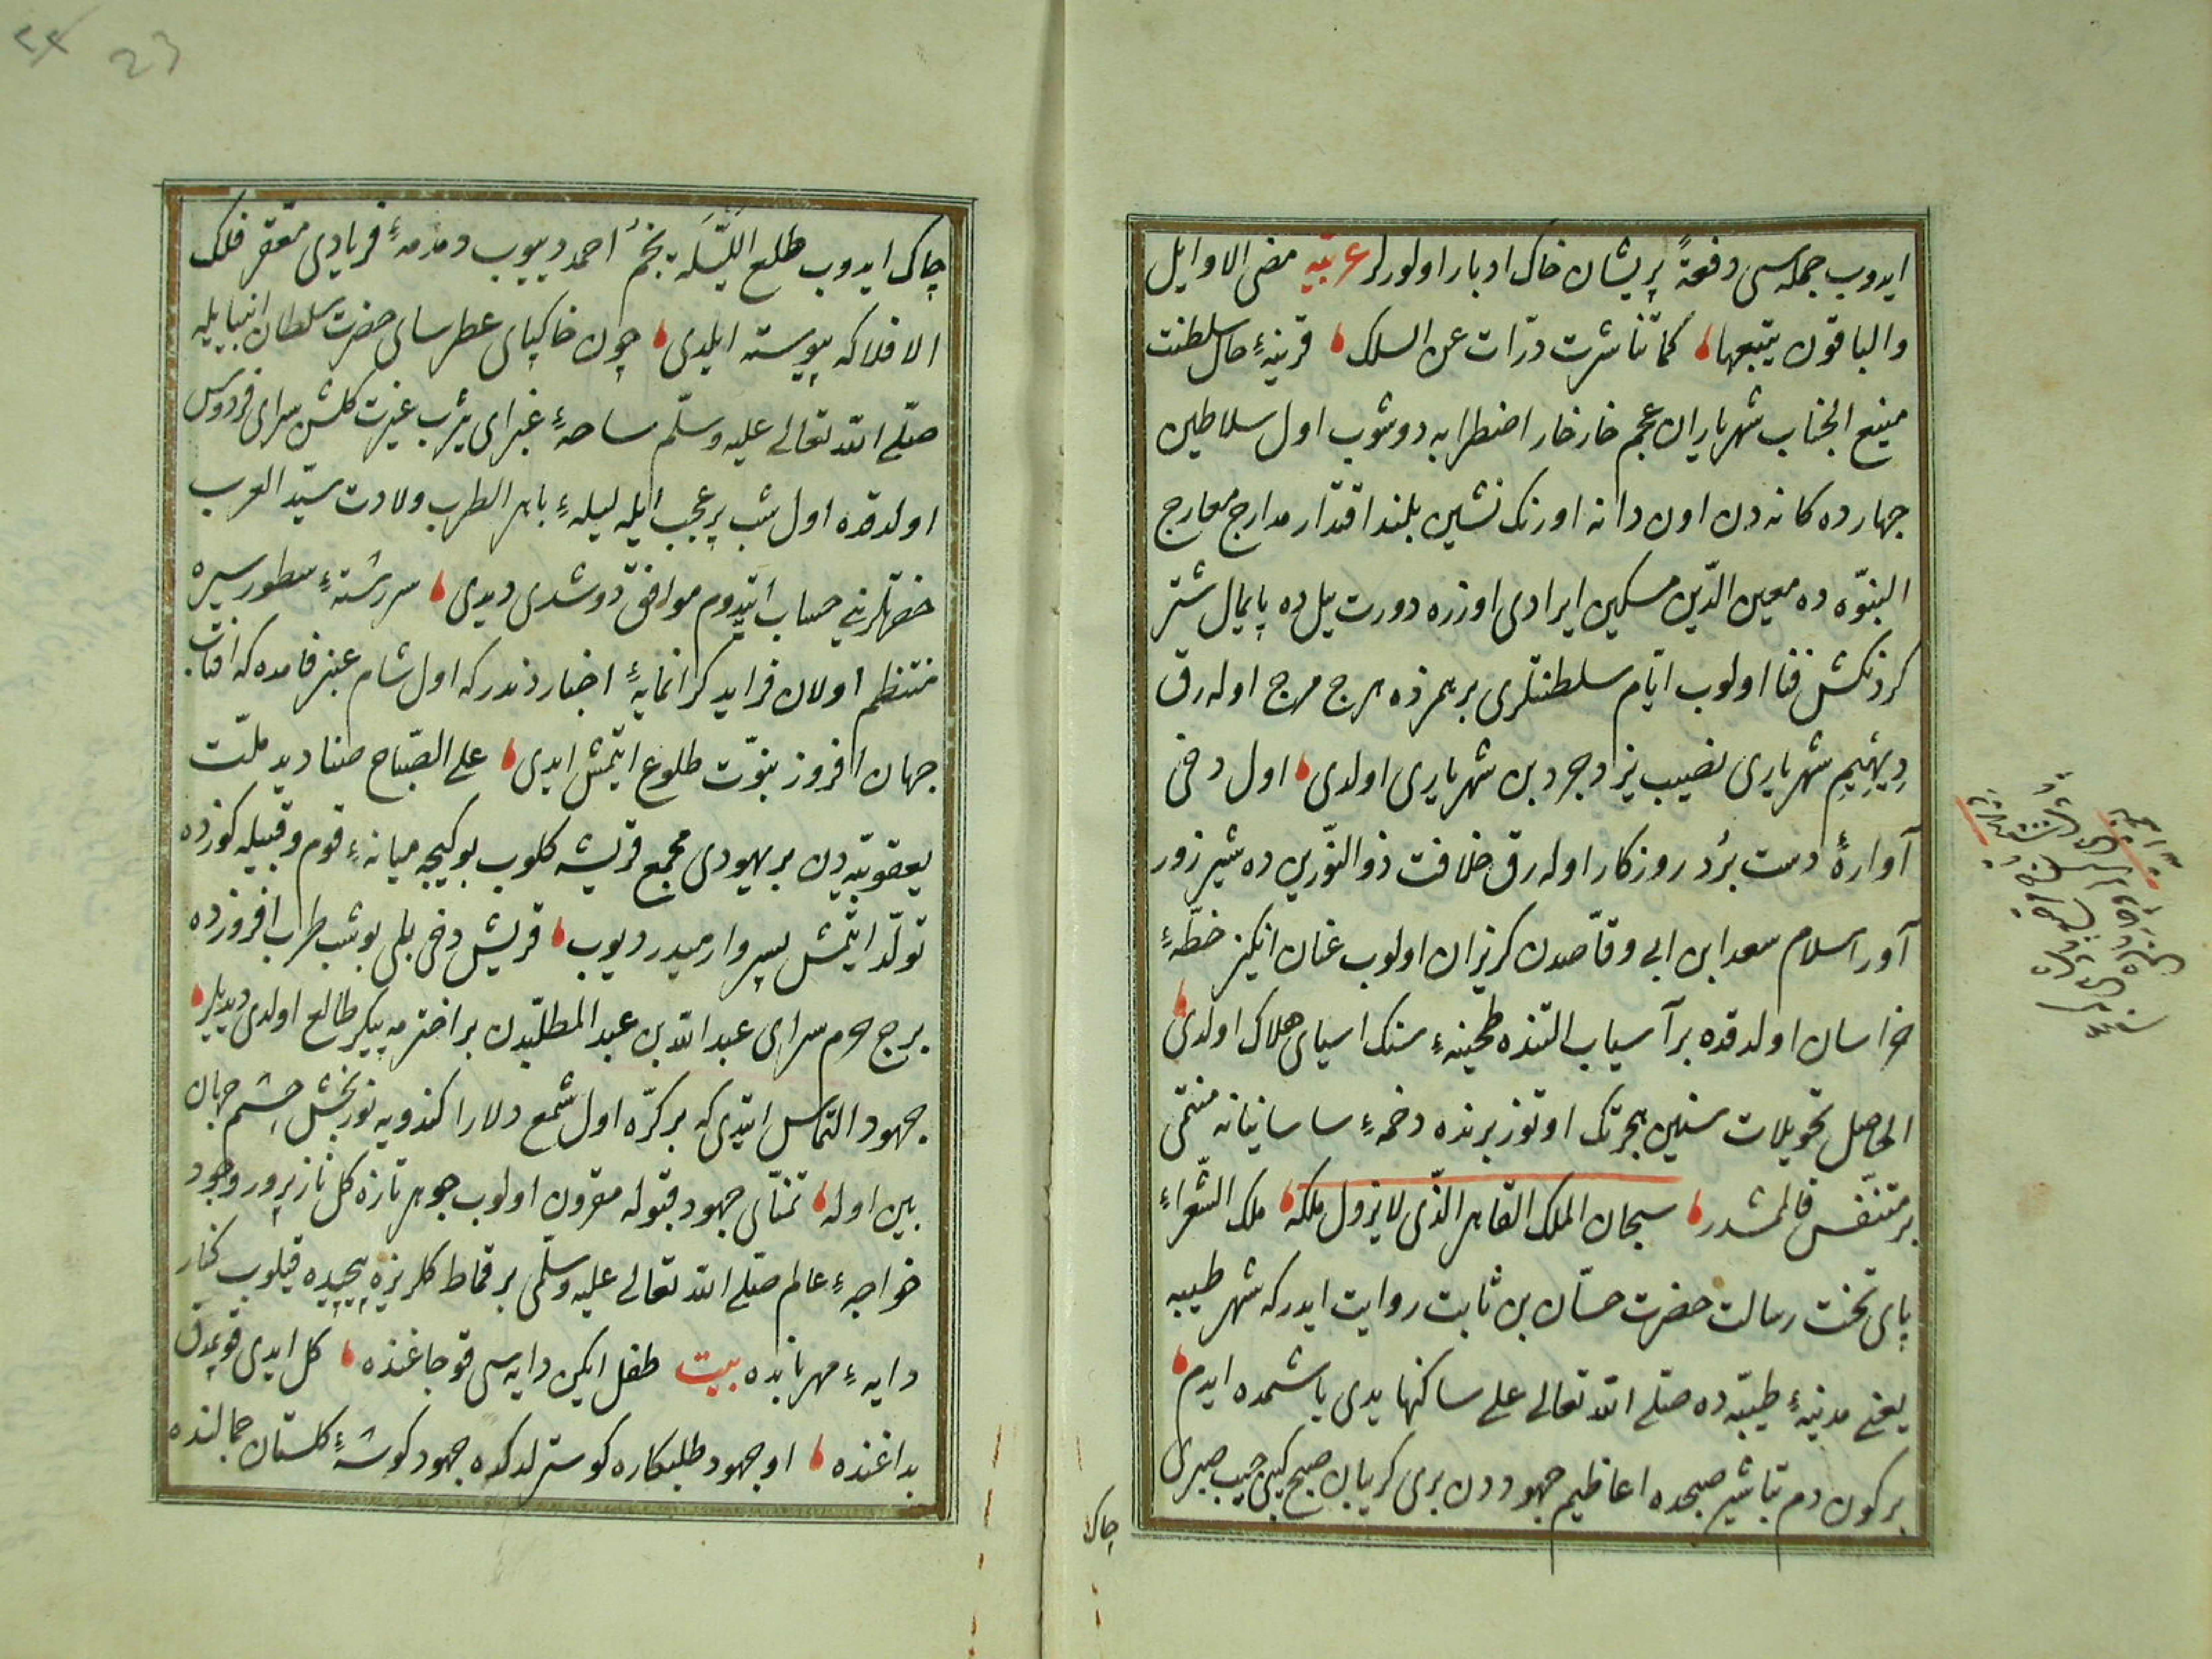 ايدوب جمله‌سى دفعةً پريشان خاك ادبار اولورلر عربيه مضى الاوايل
والباقون يتبعها كما تناشرت درّات عن السلك قرينهٔ حال سلطنت
منيع الجناب شهرياران عجم خار خار اضطرابه دوشوب اول سلاطين
چهارده كانه دن اون دانه اورنك نشين بلند اقتدار مدارج معارج
النبوّه ده معين الدّين مسكين ايرادى اوزره دورت ييل ده پايمال شتر
كردنكش فنا اولوب ايّام سلطنتلرى برهمزده هرج مرج اوله رق
ديهيم شهريارى نصيب يزدجرد بن شهريارى اولدى اول دخى
آوارهٔ دست برُد روزكار اوله رق خلافت ذو النّورين ده شير زور
آور اسلام سعد ابن ابى وقّاصدن كريزان اولوب عنان انكيز خطّهٔ
خراسان اولدقده بر آسياب التنده طحينهٔ سنك اسياى هلاك اولدى
الحاصل تحويلات سنين هجرتك اوتوز برنده دخمهٔ ساسانيانه منتمى
بر متنفّس قالمشدر سبحان الملك القاهر الّذى لا يزول ملكه ملك الشّعراءِ
پاى تخت رسالت حضرت حسّان بن ثابت روايت ايدر كه شهر طيبه
يعنى مدينهٔ طيبّه ده صلّى الله تعالى على ساكنها يدى ياشمده ايدم
بر كون دم تباشير صبحده اعاظيم جهوددن برى كريبان صبح كبى جيب صبرى
چاك
چاك ايدوب طلع اللّيلة نجمُ احمد دييوب دمدمهٔ فريادى مقعّر فلك
الافلاكه پيوسته ايلدى چون خاكپاى عطرساى حضرت سلطان انبيا يله
صلّى الله تعالى عليه وسلّم ساحهٔ غبراى يثرب غيرت كلشن سراى فردوس
اولدقده اول شب پر عجب ايله ليلهٔ باهر الطرب ولادت سيّد العرب
حضرتلرينى حساب ايتدوم موافق دوشدى ديدى سررشتهٔ سطور سيره
منتظم اولان فرايد كرانمايهٔ اخبارد‌ندر كه اول شام عنبرفامده كه افتاب
جهان افروز نبوّت طلوع ايتمش ايدى على الصّباح صناديد ملّت
يعقوبيّه دن بر يهودى مجمع قريشه كلوب بو كيجه ميانهٔ قوم وقبيله كوزده
تولّد ايتمش پسر وارميدر ديوب قريش دخى بلى بو شب طرب افروزده
برج حرم سراى عبد الله بن عبد المطلّبدن بر اختر مه پيكر طالع اولدى ديديلر
جهود التماس ايتدى كه بر كرّه اول شمع دلارا كندويه نور بخش چشم جهان
بين اوله تمنّاى جهود قبوله مقرون اولوب جوهر تازه كل ناز پرور وجود
خواجهٔ عالم صلّى الله تعالى عليه وسلّمى بر قماط كلريزه پيچيده قيلوب كنار
دايهٔ مهربانده بيت طفل ايكن دايه سى قوجاغنده كل ايدى قويمدق
بداغنده او جهود طلبكاره كوسترلدكده جهود كوشهٔ كلستان جمالنده